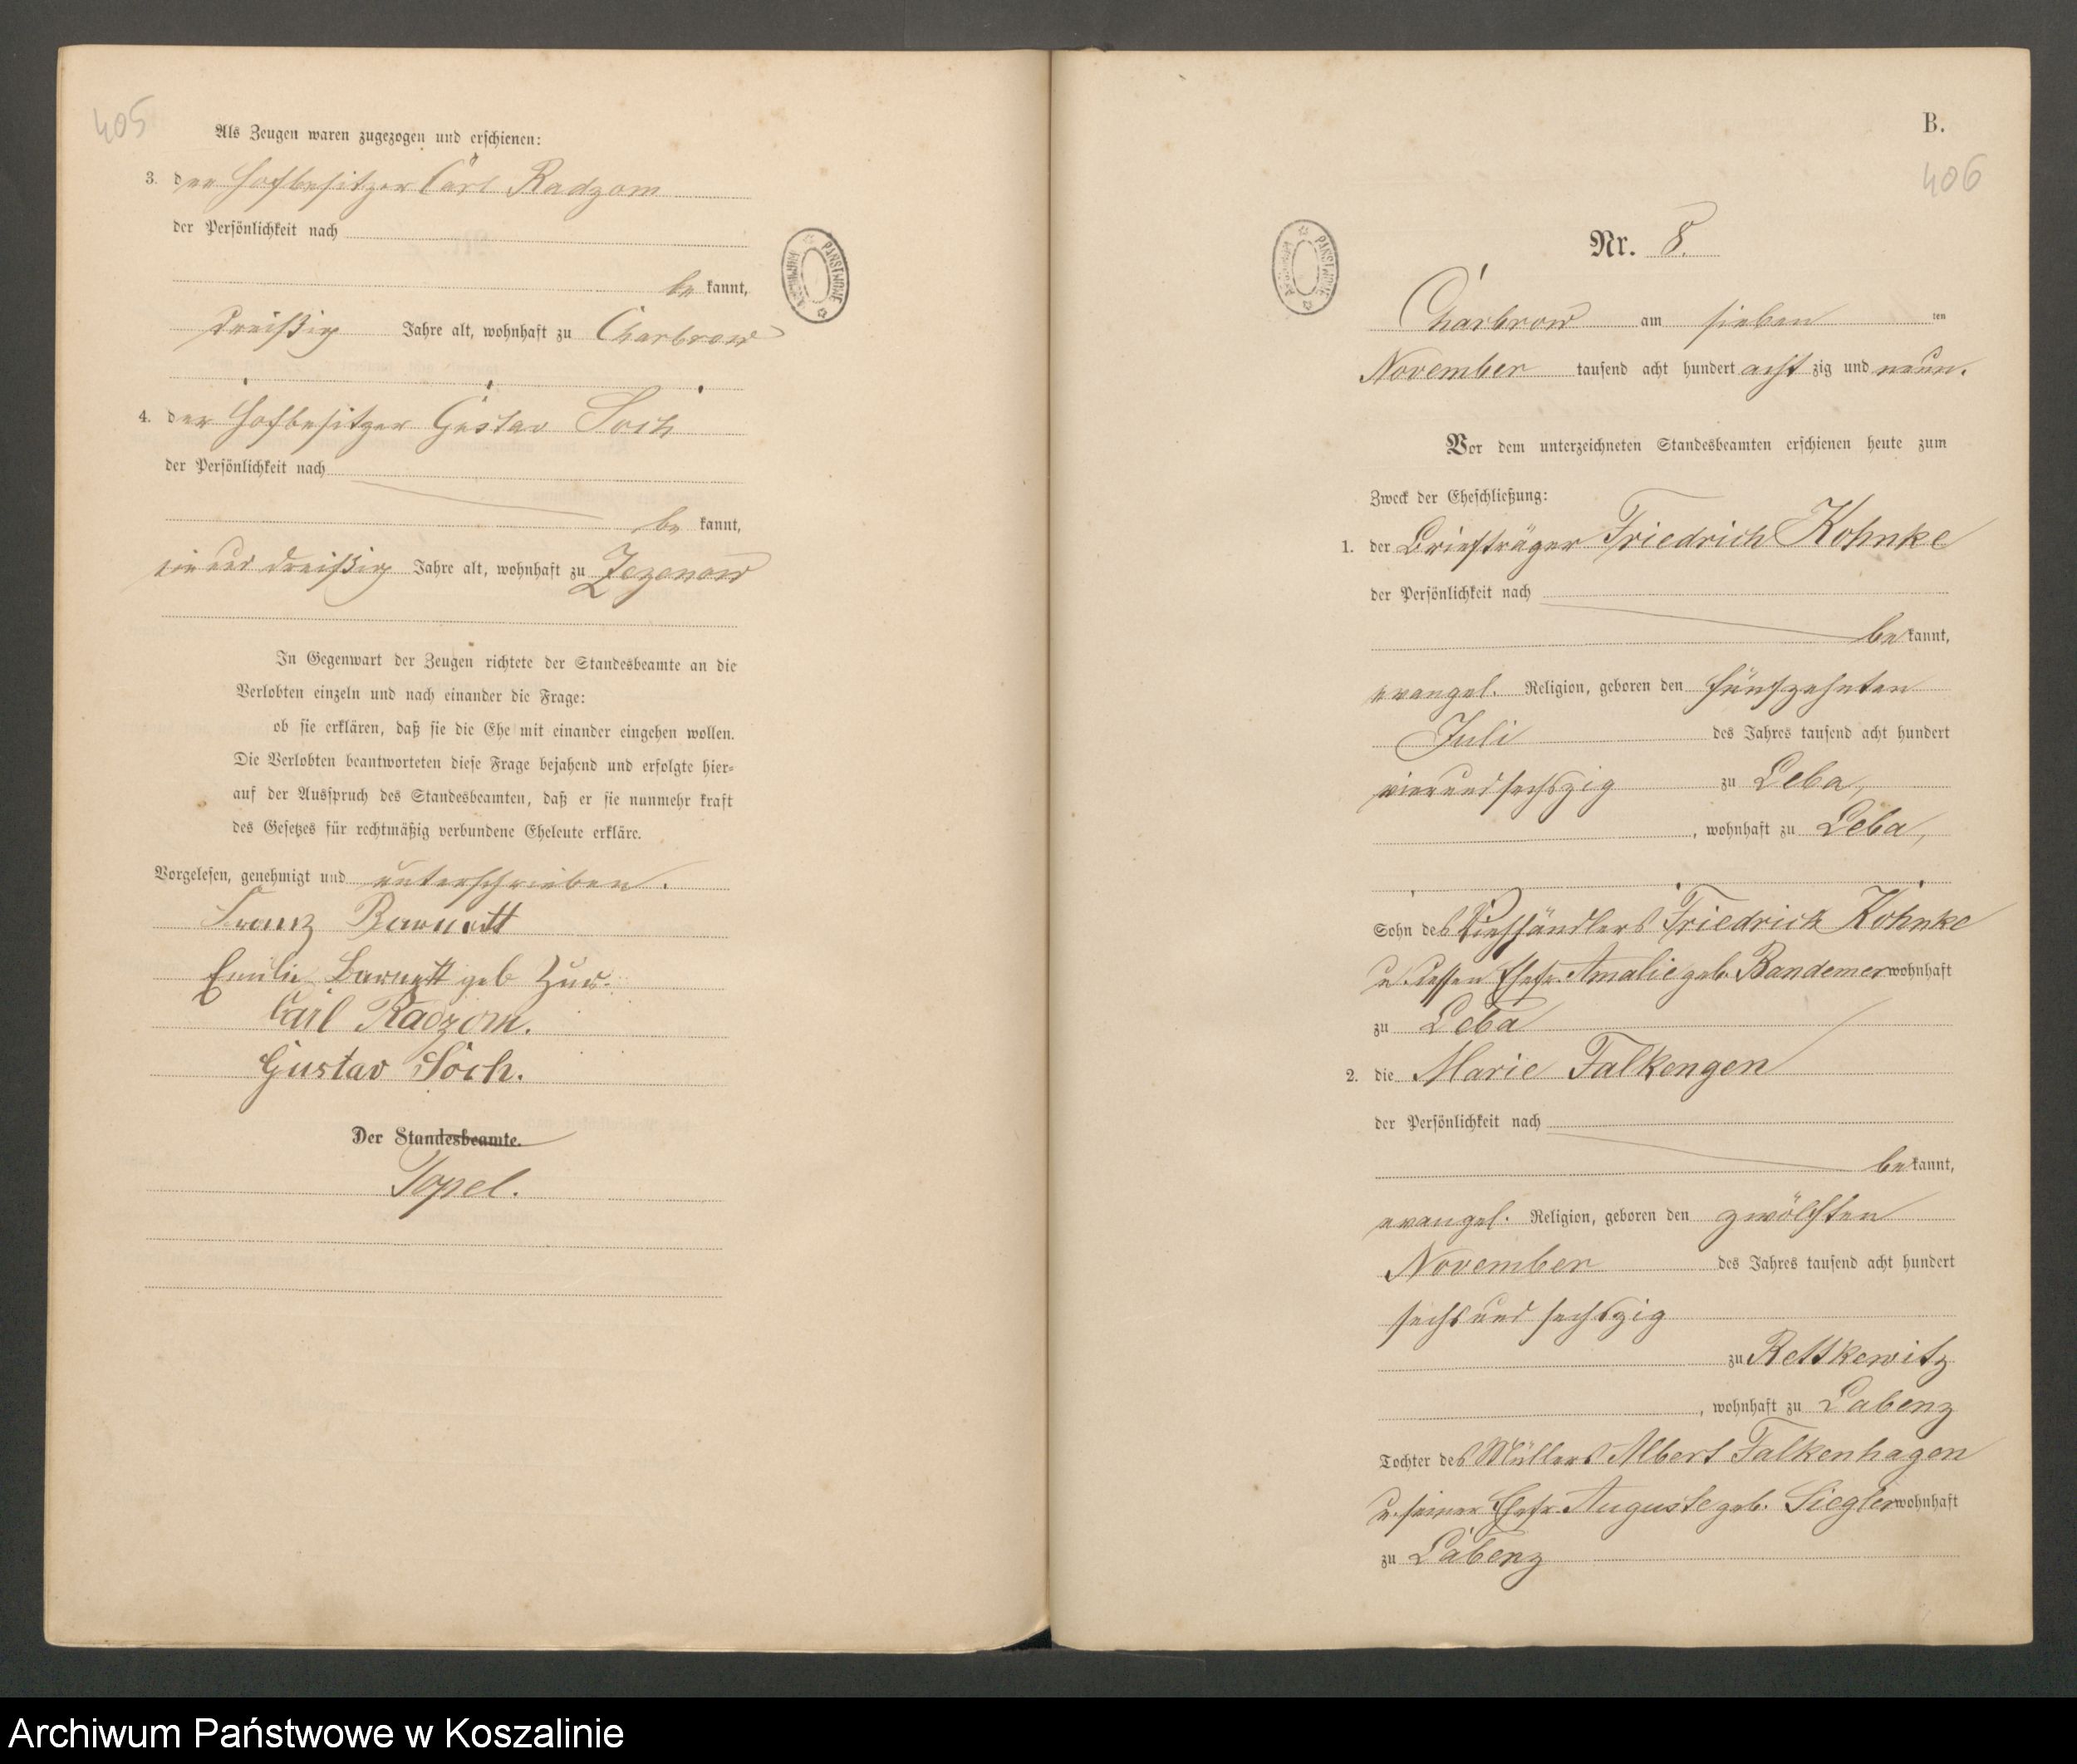 405
Als Zeugen waren zugezogen und erschienen:
3. der Hofbesitzer Carl Radzom
der Persönlichkeit nach
be kannt,
dreißig Jahre alt, wohnhaft zu Charbrow
4. der Hofbesitzer Gustav Soch
der Persönlichkeit nach
be kannt,
ein und dreißig Jahre alt, wohnhaft zu Zezenow
In Gegenwart der Zeugen richtete der Standesbeamte an die
Verlobten einzeln und nach einander die Frage:
ob sie erklären, daß sie die Ehe mit einander eingehen wollen.
Die Verlobten beantworteten diese Frage bejahend und erfolgte hier-
auf der Ausspruch des Standesbeamten, daß er sie nunmehr kraft
des Gesetzes für rechtmäßig verbundene Eheleute erkläre.
Vorgelesen, genehmigt und unterschrieben.
Franz Barnett
Emilie Barnett geb
Carl Radzom.
Gustav Soch.
Der Standesbeamte.
Topel.
ARCHIWUM PAŃSTWOWE
B.
406
ARCHIWUM PAŃSTWOWE
Nr. 8.
Charbrow am sieben ten
November tausend acht hundert acht zig und neun.
Vor dem unterzeichneten Standesbeamten erschienen heute zum
Zweck der Eheschließung:
1. der Briefträger Friedrich Kohnke
der Persönlichkeit nach
be kannt,
evangel. Religion, geboren den fünfzehnten
Juli des Jahres tausend acht hundert
vierundsechszig zu Leba,
, wohnhaft zu Leba,
Sohn des Viehhändlers Friedrich Kohnke
u. dessen Ehefr. Amalie geb. Bandemer wohnhaft
zu Leba
2. die Marie Falkengen
der Persönlichkeit nach
be kannt,
evangel. Religion, geboren den zwölften
November des Jahres tausend acht hundert
sechs und sechszig
zu Rettkewitz
, wohnhaft zu Labenz
Tochter des Müllers Albert Falkenhagen
u. seiner Ehefr. Auguste geb. Siegler wohnhaft
zu Labenz
Archiwum Państwowe w Koszalinie